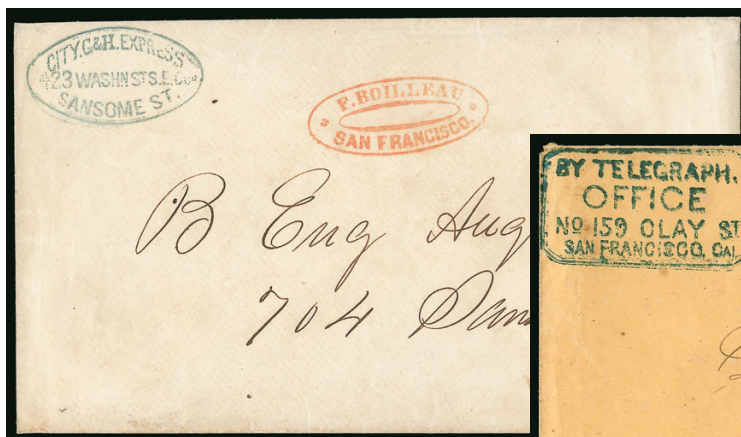 CITY. G&H. EXPRESS
423 WASHN ST S.E. Cor
SANSOME ST.
F. BOILLEAU
SAN FRANCISCO.
B Eng Aug
704 San
BY TELEGRAPH.
OFFICE
No 159 CLAY ST
SAN FRANCISCO, CAL